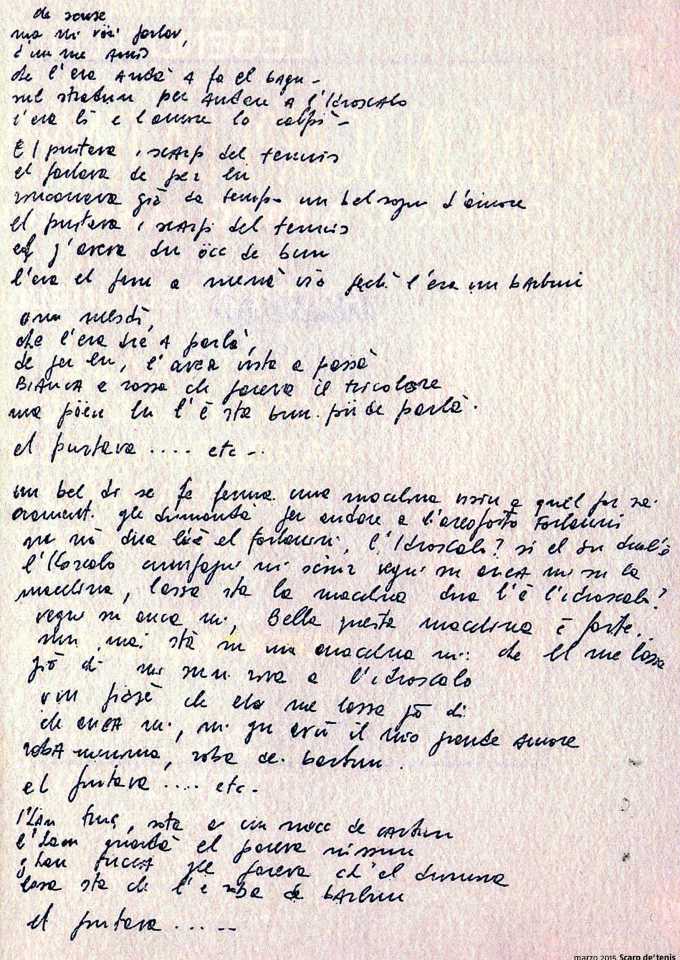 de scuse
ma mi vöri parlav,
d'un me amis
che l'era andà a fa el bagn -
sul stradun per andare a l'idroscalo
l'era lì e l'amore lo colpì -
El purtava i scarp del tennis
el parlava de per lu
rincorreva già da tempo un bel sogno d'amore
el purtava i scarp del tennis
el g'aveva du öcc de bun
l'era el prim a menà via perchè l'era un barbun
che l'era dre a parlà,
de per lu, l'aveva vista a passà
bianca e rossa che pareva il tricolore
ma pöeu lu l'è sta bun. più de parlà.
el purtava .... etc -.
un bel dì se ge ferma una macchina visin a quel por
gh dumandà per andare a l'aeroporto Forlanini
el Forlanini, l'idroscalo? sì el su dua l'è
l'idroscalo mi vegni su anca mi su la
macchina, lassa sta la macchina dua l'è l'idroscalo?
vegni su anca mi, Bella questa macchina è forte.
mai stà in una macchina mi: che el me lassa
giò chi mi sun rivà a l'idroscalo
piasè che ela me lassa giò chi
che anca mi, mi gu avü il mio grande amore
roba minima, roba de barbun.
el purtava .... etc -
l'han truà, sota a un mücc de cartun
l'han guardà el pareva nissun
l'han tuccà che pareva ch'el durmiva
lassa sta che l'è roba de barbun
el purtava .....--
marzo 2015 Scarp de' tenis